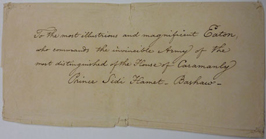 To the most illustrious and magnificent Eaton
who commands the invincible Army of the
most distinguished of the House of Caramanly
Prince Sidi Hamet – Bashaw –